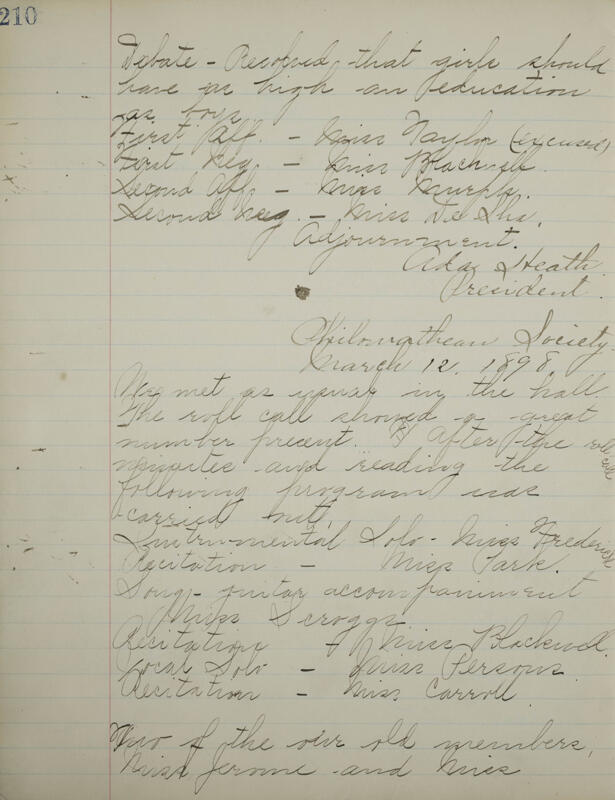 210
Debate - Resolved that girls should
have as high an education
as boys
First Aff. - Miss Naylor (excused)
First Neg. - Miss Blackwell.
Second Aff. - Miss Murph.
Second Neg. - Miss De Sha.
Adjournment.
Ada Heath
President.
Philomathean Society.
March 12, 1898.
We met as usual in the hall.
The roll call showed a great
number present. After the roll call
minutes and reading the
following program was
carried out.
Instrumental Solo - Miss Frederick
Recitation - Miss Park.
Song - guitar accompaniment
Miss Scroggs
Recitation - Miss Blackwell.
Vocal Solo - Miss Persons.
Recitation - Miss Carroll.
Two of the our old members,
Miss Jerome and Miss